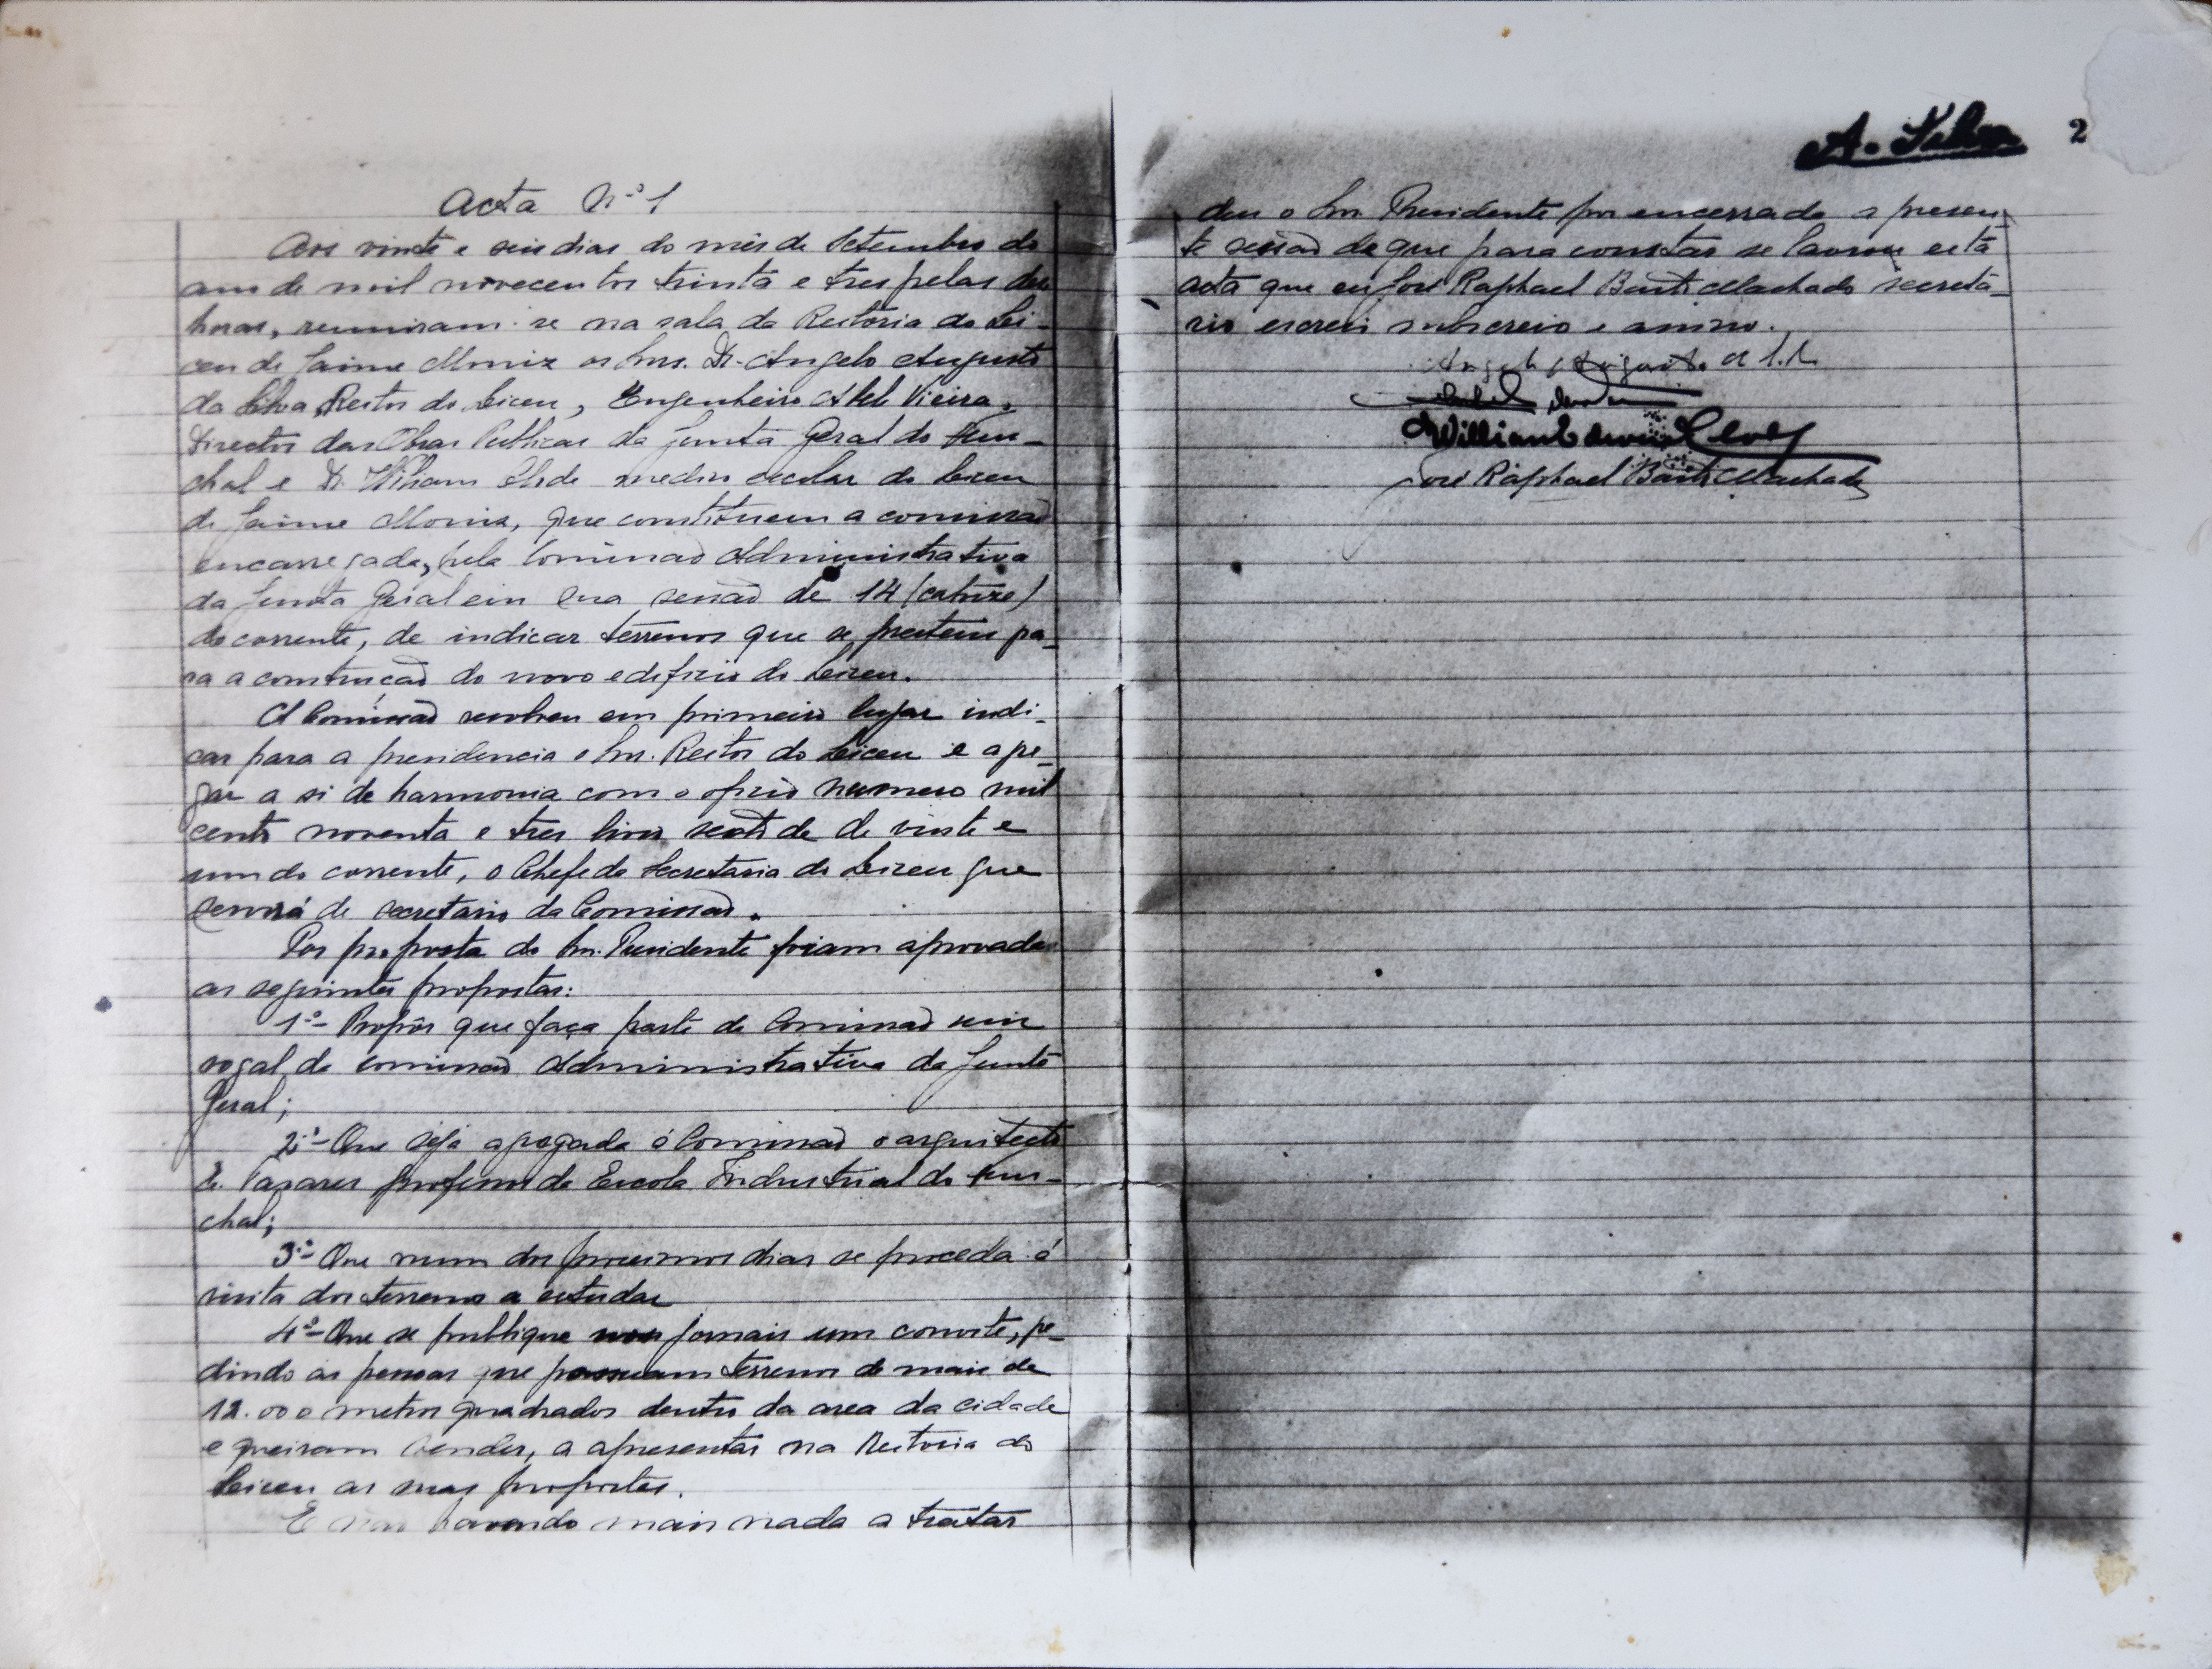 Acta N.º 1
Aos vinte e seis dias do mês de Setembro do
ano de mil novecentos trinta e tres pelas dez
horas, reuniram-se na sala da Reitoria do Li-
ceu de Jaime Moniz os Snrs. Dr. Angelo Augusto
da Silva, Reitor do Liceu, Engenheiro Abel Vieira,
Director das Obras Publicas da Junta Geral do Fun-
chal e Dr. William Clode medico escolar do Liceu
de Jaime Moniz, que constituem a comissão
encarregada, pela Comissão Administrativa
da Junta Geral em sua sessão de 14 (catorze)
do corrente, de indicar terrenos que se prestem pa-
ra a construcão do novo edificio do Liceu.
A Comissão resolveu em primeiro lugar indi-
car para a presidencia o Snr. Reitor do Liceu e agre-
gar a si de harmonia com o oficio numero mil
cento noventa e tres de vinte e
um do corrente, o Chefe da Secretaria do Liceu que
servirá de secretario da Comissão.
Por proposta do Snr. Presidente foram aprovadas
as seguintes propostas:
1.º - Propôs que faça parte da Comissão um
vogal da comissão Administrativa da Junta
Geral;
2.º - Que seja agregado á Comissão o arquitecto
E. Tavares professor da Escola Industrial do Fun-
chal;
3.º - Que num dos proximos dias se proceda á
visita dos terrenos a estudar
4.º - Que se publique nos jornais um convite, pe-
dindo ás pessoas que possuam terrenos de mais de
12.000 metros quadrados dentro da area da cidade
e queiram vender, a apresentar na Reitoria do
Liceu as suas propostas.
E não havendo mais nada a tratar
A. Silva 2
deu o Snr. Presidente por encerrada a presen-
te sessão de que para constar se lavrou esta
acta que eu José Raphael Basto Machado secretá-
rio escrevi subscrevo e assino.
Angelo Augusto da Silva
Abel Vieira
William Edward Clode
José Raphael Basto Machado